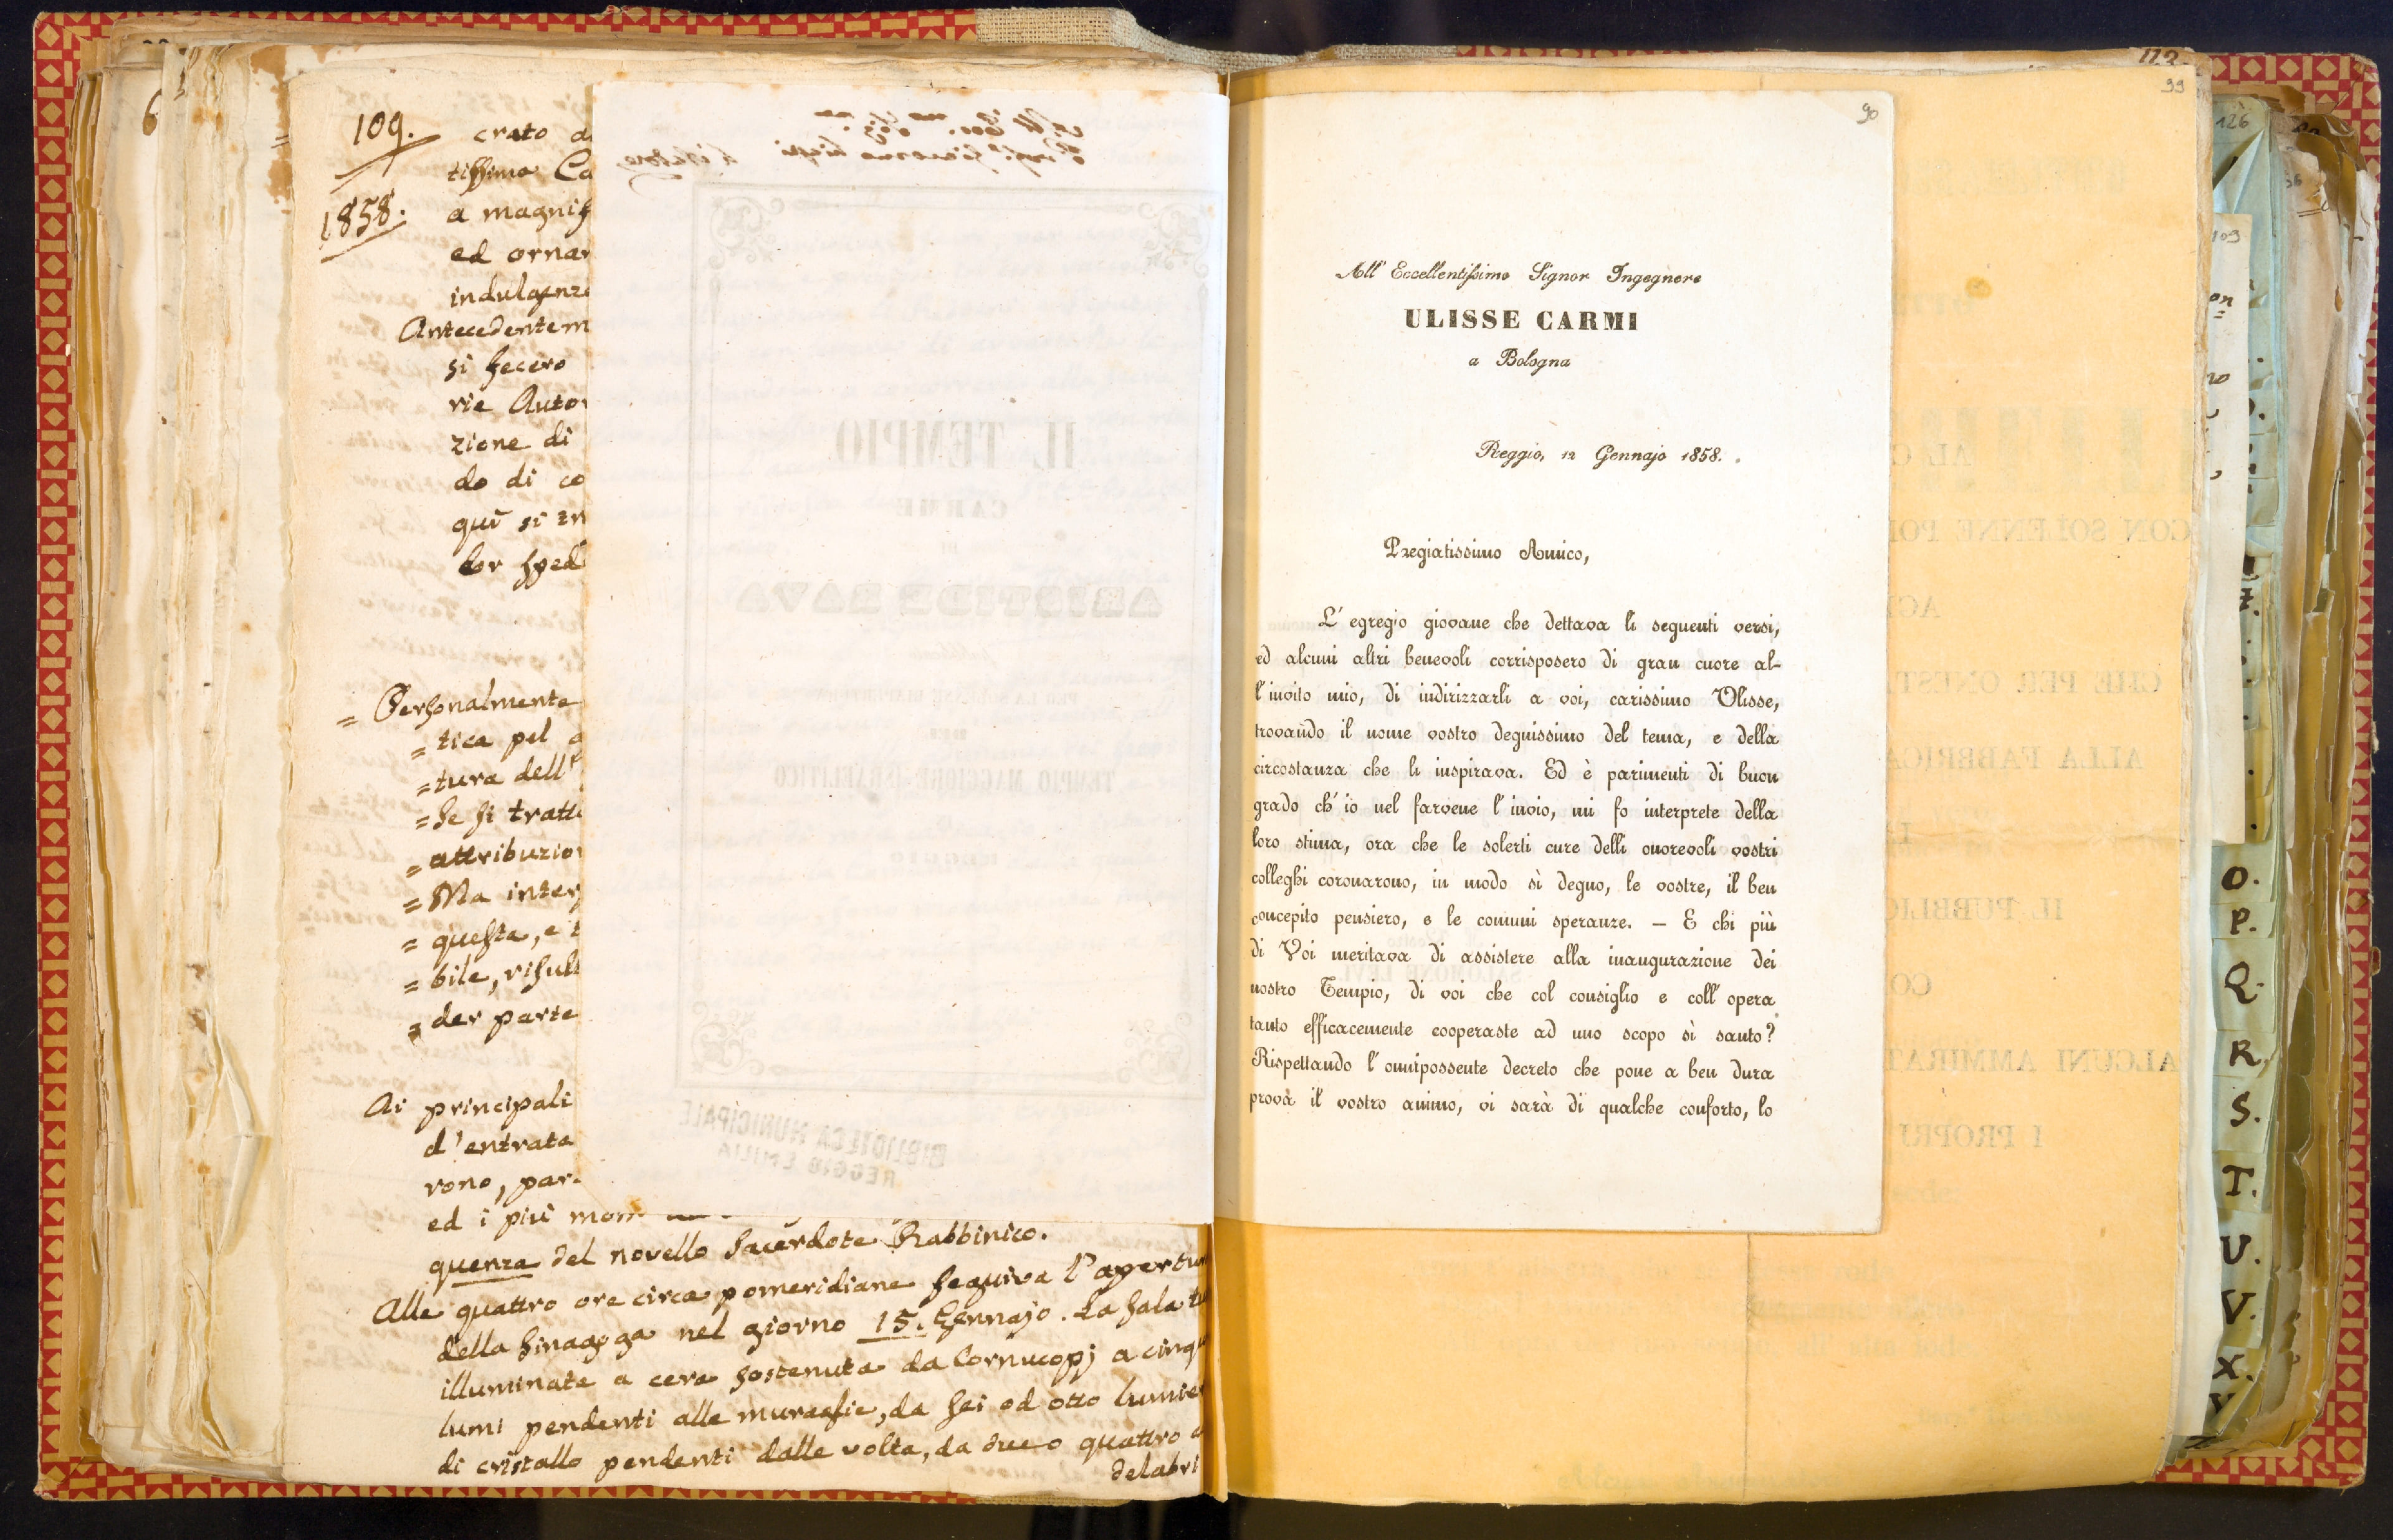 109.
1858.
crato
tissima Ca
a magnif
ed ornar
indulgenza
Antecedentem
si fecero
rie Auto
zione di
do di co
quì si in
lor sped
= Personalmente
= tica pel
= tura dell'
= se si tratt
= attribuzion
= Ma inter
= questa, e
= bile, risul
= der parte
Ai principali
d'entrata
rono, par
ed i più mom
quenza del novello Sacerdote Rabbinico.
Alle quattro ore circa pomeridiane seguiva l'apertu
della Sinagoga nel giorno 15. Gennajo. La sala
illuminata a cera sostenuta da Cornucopj a cinqu
lumi pendenti alle muraglie, da sei od otto lumie
di cristallo pendenti dalle volta, da due o quattro
delabri
IL TEMPIO
CARME
DI
ARISTIDE
TEMPIO MAGGIORE ISRAELITICO
BIBLIOTECA MUNICIPALE
REGGIO EMILIA
90
All' Eccellentissimo Signor Ingegnere
ULISSE CARMI
a Bologna
Reggio, 12 Gennajo 1858.
Pregiatissimo Amico,
L' egregio giovane che dettava li seguenti versi,
ed alcuni altri benevoli corrisposero di gran cuore al-
l' invito mio, di indirizzarli a voi, carissimo Ulisse,
trovando il nome vostro degnissimo del tema, e della
circostanza che li inspirava. Ed è parimenti di buon
grado ch' io nel farvene l' invio, mi fo interprete della
loro stima, ora che le solerti cure delli onorevoli vostri
colleghi coronarono, in modo sì degno, le vostre, il ben
concepito pensiero, e le comuni speranze. — E chi più
di Voi meritava di assistere alla inaugurazione dei
nostro Tempio, di voi che col consiglio e coll' opera
tanto efficacemente cooperaste ad uno scopo sì santo?
Rispettando l' onnipossente decreto che pone a ben dura
prova il vostro animo, vi sarà di qualche conforto, lo
SALOMONE LEVI
113
99
CON SOLENNE
CHE PER
ALLA FABBRICA
IL PUBBLIC
CO
ALCUNI AMMIRAT
I PROPRJ
126
103
O.
P.
Q.
R.
S.
T.
U.
V.
X.